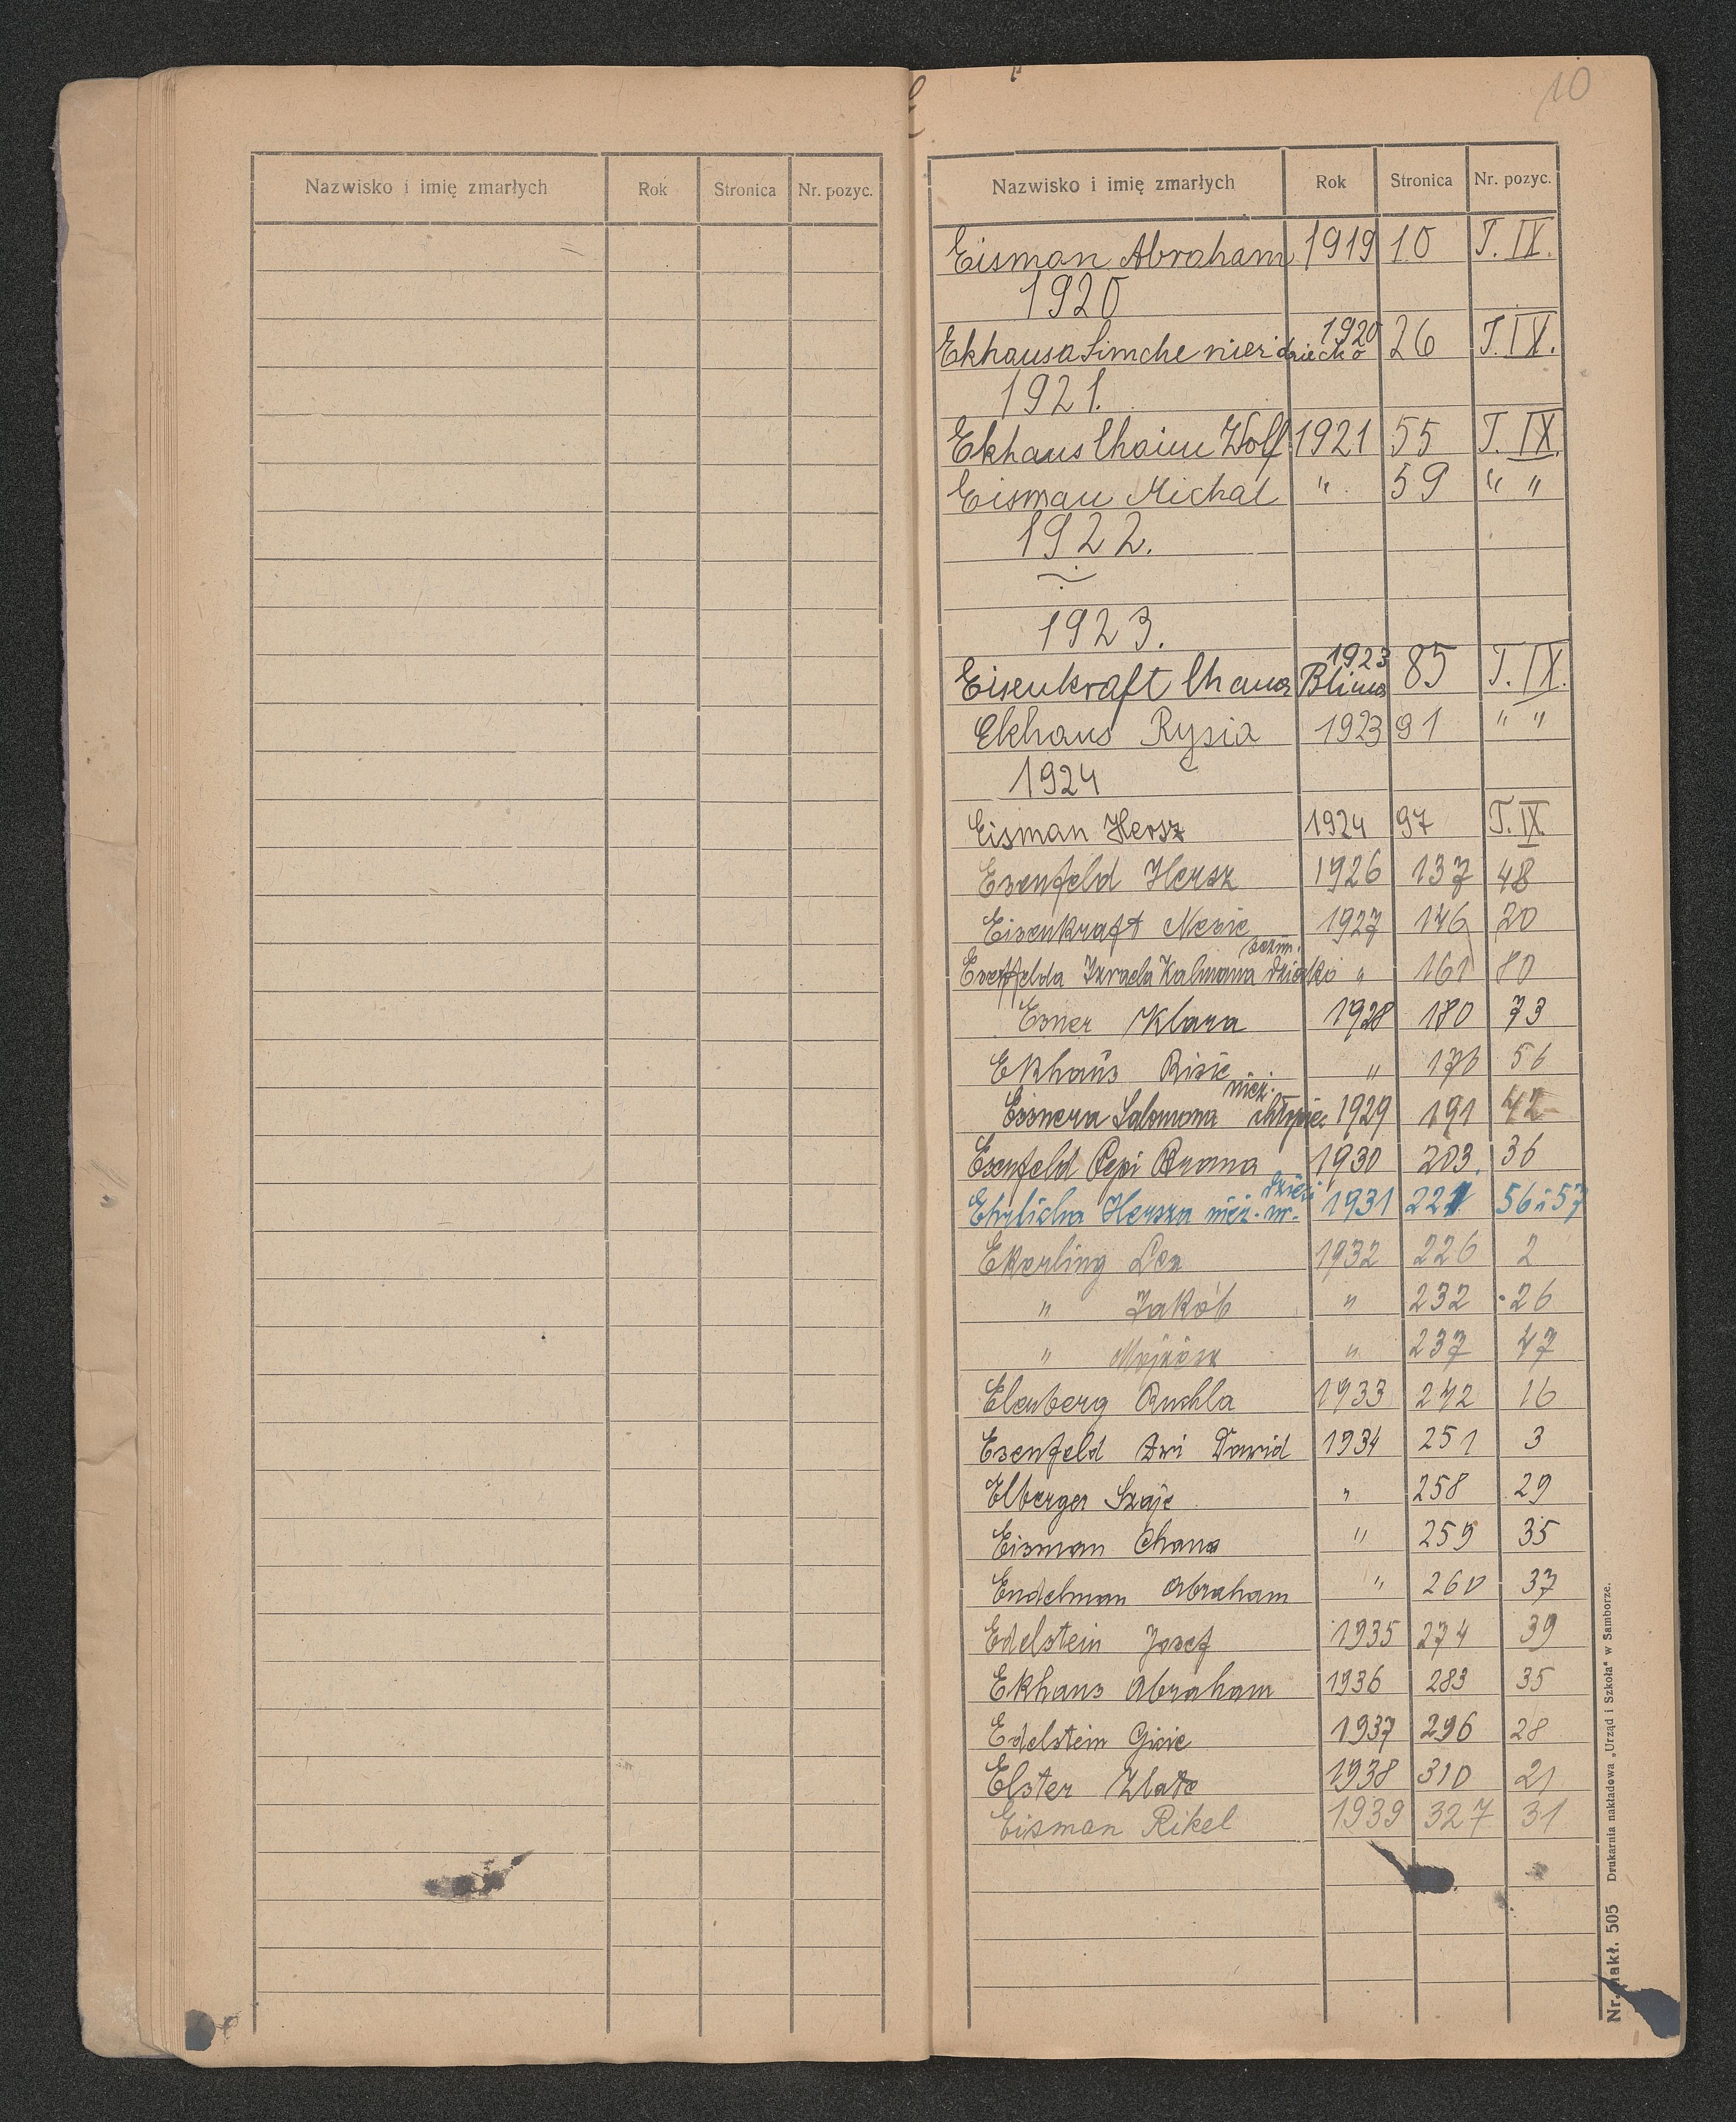 10
Nazwisko i imię zmarłych Rok Stronica Nr. pozyc.
Nazwisko i imię zmarłych Rok Stronica Nr. pozyc.
Eisman Abraham 1919 10 T. IX.
1920
Ekhausa Simche nież dziecko 1920 26 T. IX.
1921.
Ekhaus Chaim Wolf 1921 55 T. IX.
Eisman Michal " 59 " "
1922.
1923.
Eisenkraft Chana Blima 1923 85 T. IX.
Ekhaus Rysia 1923 91 " "
1924
Eisman Hersz 1924 97 T. IX
Esenfeld Hersz 1926 137 48
Eisenkraft Nesie 1927 146 20
Esenfelda Izraela Kalmana dziecko " 161 80
Esner Klara 1928 180 73
Ekhaus Risie " 176 56
Essnera Salomona nież. chłopiec 1929 191 42
Esenfeld Pepi Bruna 1930 203 36
Ehrlicha Hersza nież. nr. dzieci 1931 221 56 i 57
Ekerling Lea 1932 226 2
" Jakób " 232 26
" " 237 47
Elenberg Ruchla 1933 242 16
Esenfeld Dawid 1934 251 3
Elberger Szaje " 258 29
Eisman Chana " 259 35
Endelman Abraham " 260 37
Edelstein Josef 1935 274 39
Ekhaus Abraham 1936 283 35
Edelstein Gisie 1937 296 28
Elster Zlate 1938 310 21
Eisman Rikel 1939 327 31
Nr. nakł. 505 Drukarnia nakładowa „Urząd i Szkoła" w Samborze.